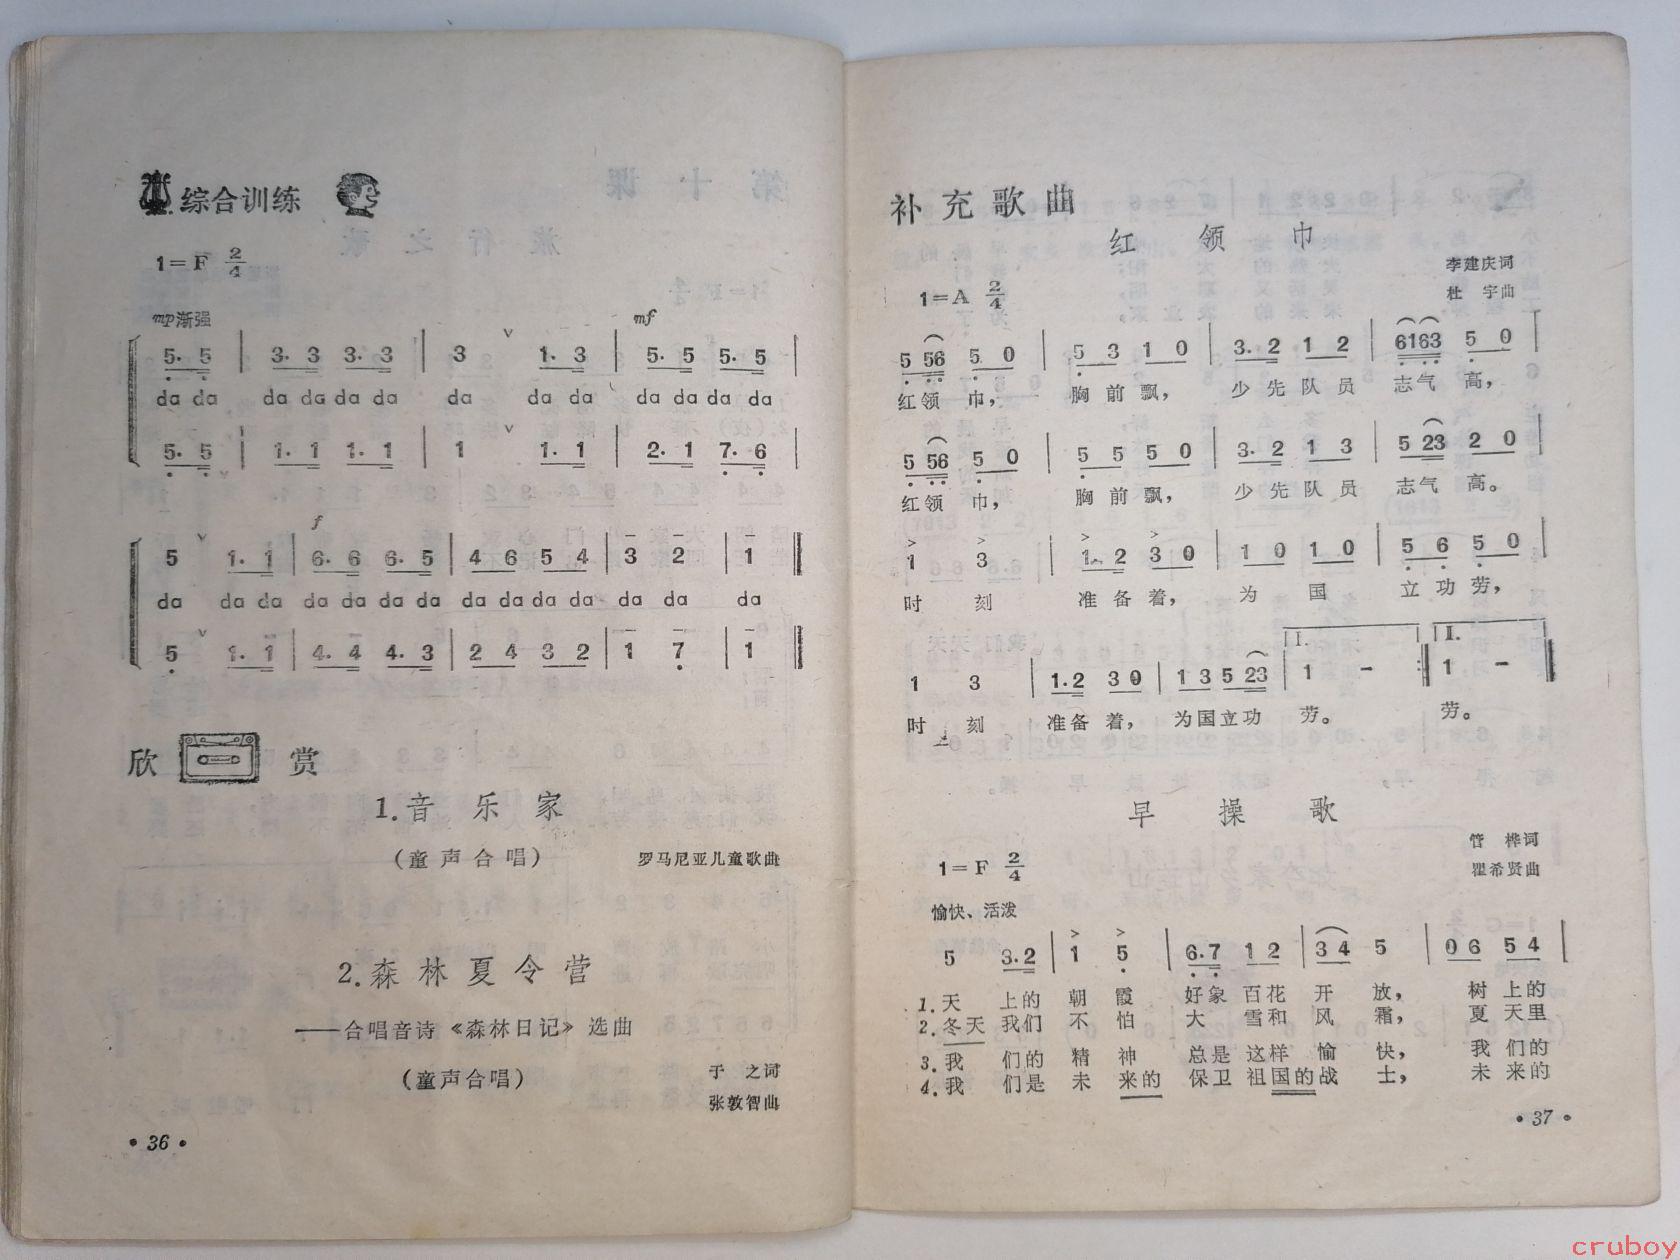 综合训练
1=F 2/4
mp渐强 mf
5. 5 | 3. 3 3. 3 | 3 ∨ 1. 3 | 5. 5 5. 5 |
da da da da da da da da da da da da da
5. 5 | 1. 1 1. 1 | 1 ∨ 1. 1 | 2. 1 7. 6 |
f
5 ∨ 1. 1 | 6. 6 6. 5 | 4 6 5 4 | 3 2 | 1
da da da da da da da da da da da da da da
5 ∨ 1. 1 | 4. 4 4. 3 | 2 4 3 2 | 1 7 | 1
欣赏
1.音乐家
(童声合唱) 罗马尼亚儿童歌曲
2.森林夏令营
——合唱音诗《森林日记》选曲
(童声合唱)
于之词
张敦智曲
• 36 •
补充歌曲
红领巾
李建庆词
杜宇曲
1=A 2/4
5 56 5 0 | 5 3 1 0 | 3. 2 1 2 | 6163 5 0 |
红领巾, 胸前飘, 少先队员 志气高,
5 56 5 0 | 5 5 5 0 | 3. 2 1 3 | 5 23 2 0 |
红领巾, 胸前飘, 少先队员 志气高。
> > > >
1 3 | 1. 2 3 0 | 1 0 1 0 | 5 6 5 0 |
时刻 准备着, 为国 立功劳,
I. II.
1 3 | 1.2 3 0 | 1 3 5 23 | 1 - 1 -
时刻 准备着, 为国立功 劳。 劳。
早操歌
管桦词
瞿希贤曲
1=F 2/4
愉快、活泼
5 3.2 | 1 5 | 6.7 1 2 | 3 4 5 | 0 6 5 4 |
1.天 上的 朝霞 好象百花 开放, 树上的
2.冬天 我们 不怕 大雪和风霜, 夏天里
3.我 们的 精神 总是这样 愉快, 我们的
4.我 们是 未来的 保卫祖国的战士, 未来的
• 37 •
cruboy